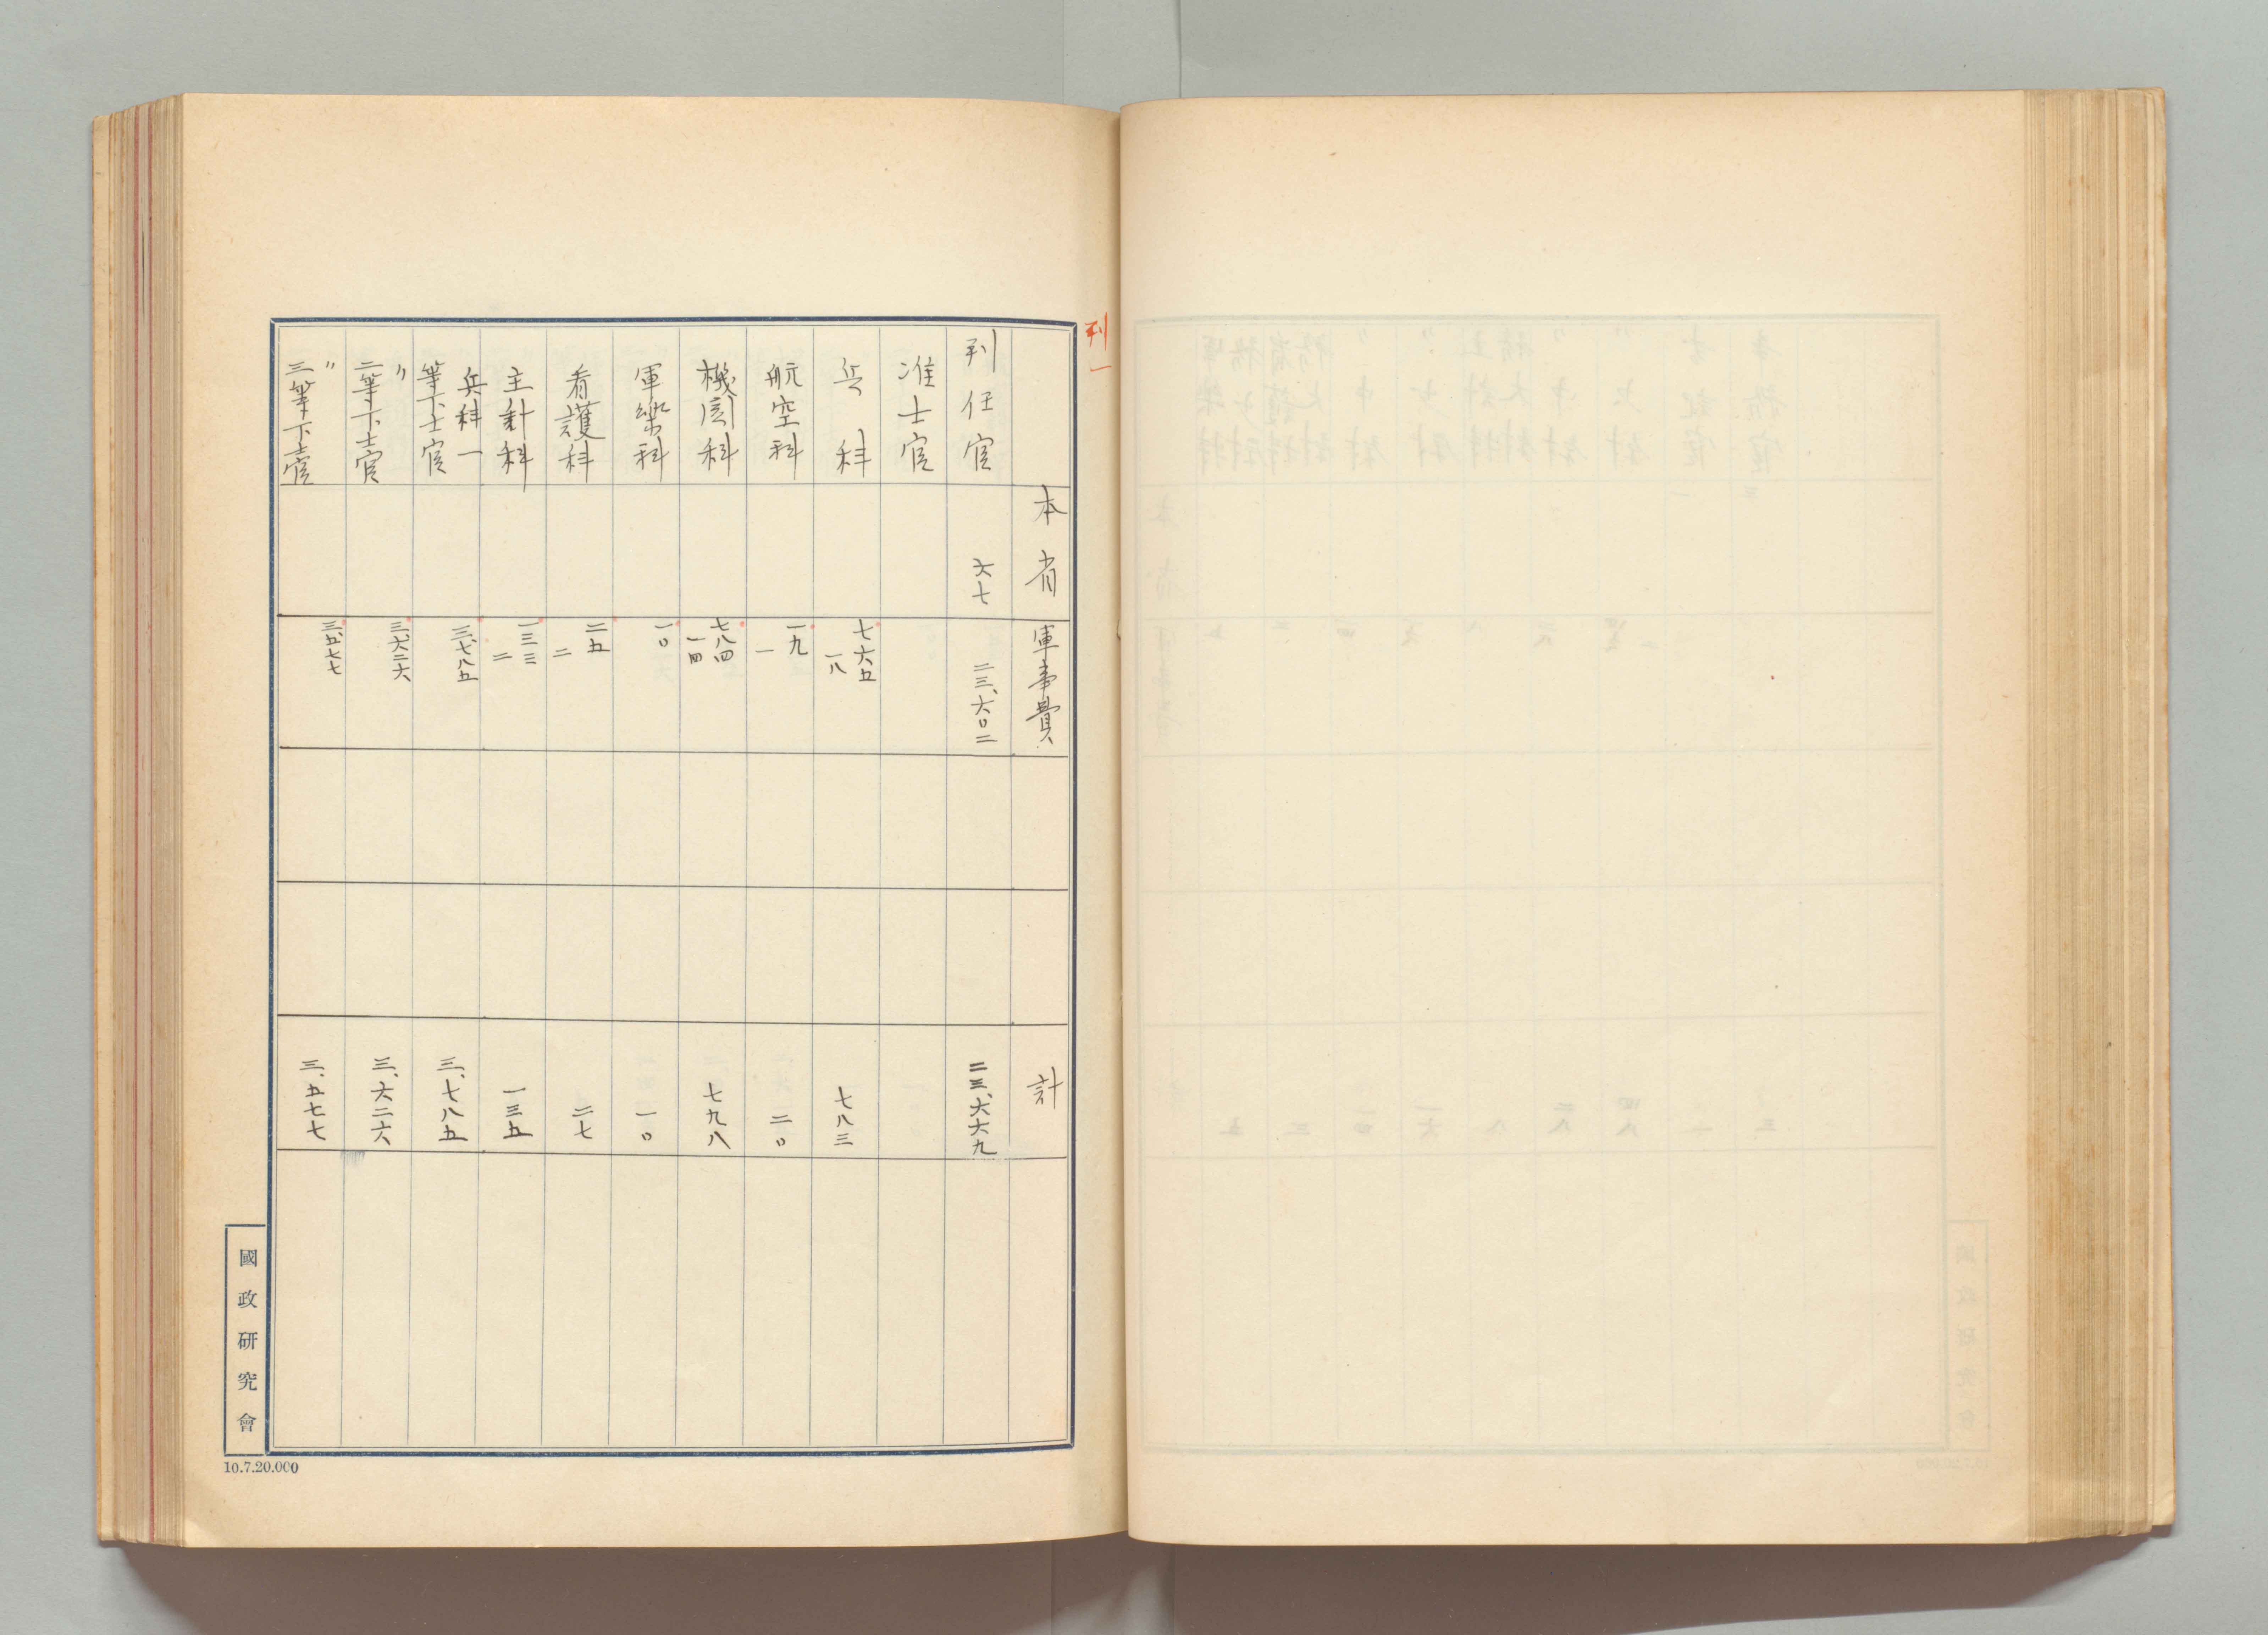 判一
本省
軍事費
計
判任官
六七
二三、六〇二
二三、六六九
准士官
兵科
七六五
一八
七八三
航空科
一九
一
二〇
機関科
七八四
一四
七九八
軍楽科
一〇
一〇
看護科
二五
二
二七
主計科
一三三
二
一三五
兵科一
等下士官
三、七八五
三、七八五
〃
二等下士官
三、六二六
三、六二六
〃
三等下士官
三、五七七
三、五七七
國政研究會
10.7.20.000